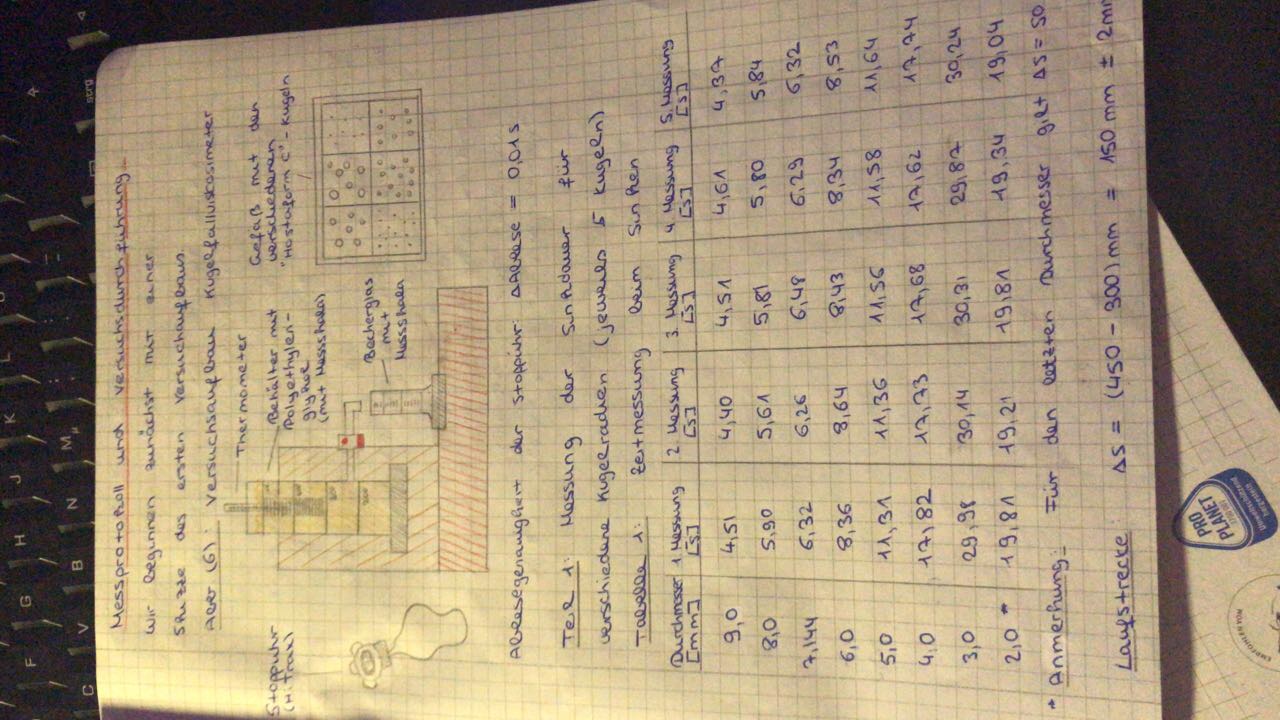 F G H J K L
C V B N M µ ; : _ strg
Messprotokoll und Versuchsdurchführung
Wir beginnen zunächst mit einer
Skizze des ersten Versuchaufbaus.
Abb (6): Versuchsaufbau Kugelfallviskosimeter
Thermometer
Stoppuhr
(HiTrax)
Behälter mit
Polyethylen-
glykol
(mit Messskala)
Gefäß mit den
verschiedenen
"Hostaform C"-Kugeln
Becherglas
mit
Messskala
Ablesegenauigkeit der Stoppuhr: ΔAblese = 0,01s
Teil 1: Messung der Sinkdauer für
verschiedene Kugelradien (jeweils 5 Kugeln)
Tabelle 1: Zeitmessung beim Sinken
Durchmesser [mm] 1. Messung [s] 2. Messung [s] 3. Messung [s] 4. Messung [s] 5. Messung [s]
9,0 4,51 4,40 4,51 4,61 4,37
8,0 5,90 5,61 5,81 5,80 5,84
7,144 6,32 6,26 6,48 6,29 6,32
6,0 8,36 8,64 8,43 8,34 8,53
5,0 11,31 11,36 11,56 11,58 11,64
4,0 17,82 17,73 17,68 17,62 17,74
3,0 29,98 30,14 30,31 29,87 30,24
2,0 * 19,81 19,21 19,81 19,34 19,04
* Anmerkung: Für den letzten Durchmesser gilt ΔS = 50
Laufstrecke: ΔS = (450 - 300) mm = 150 mm ± 2mm
PRO
PLANET
Umweltschützend
hergestellt
EMPFOHLEN VOM